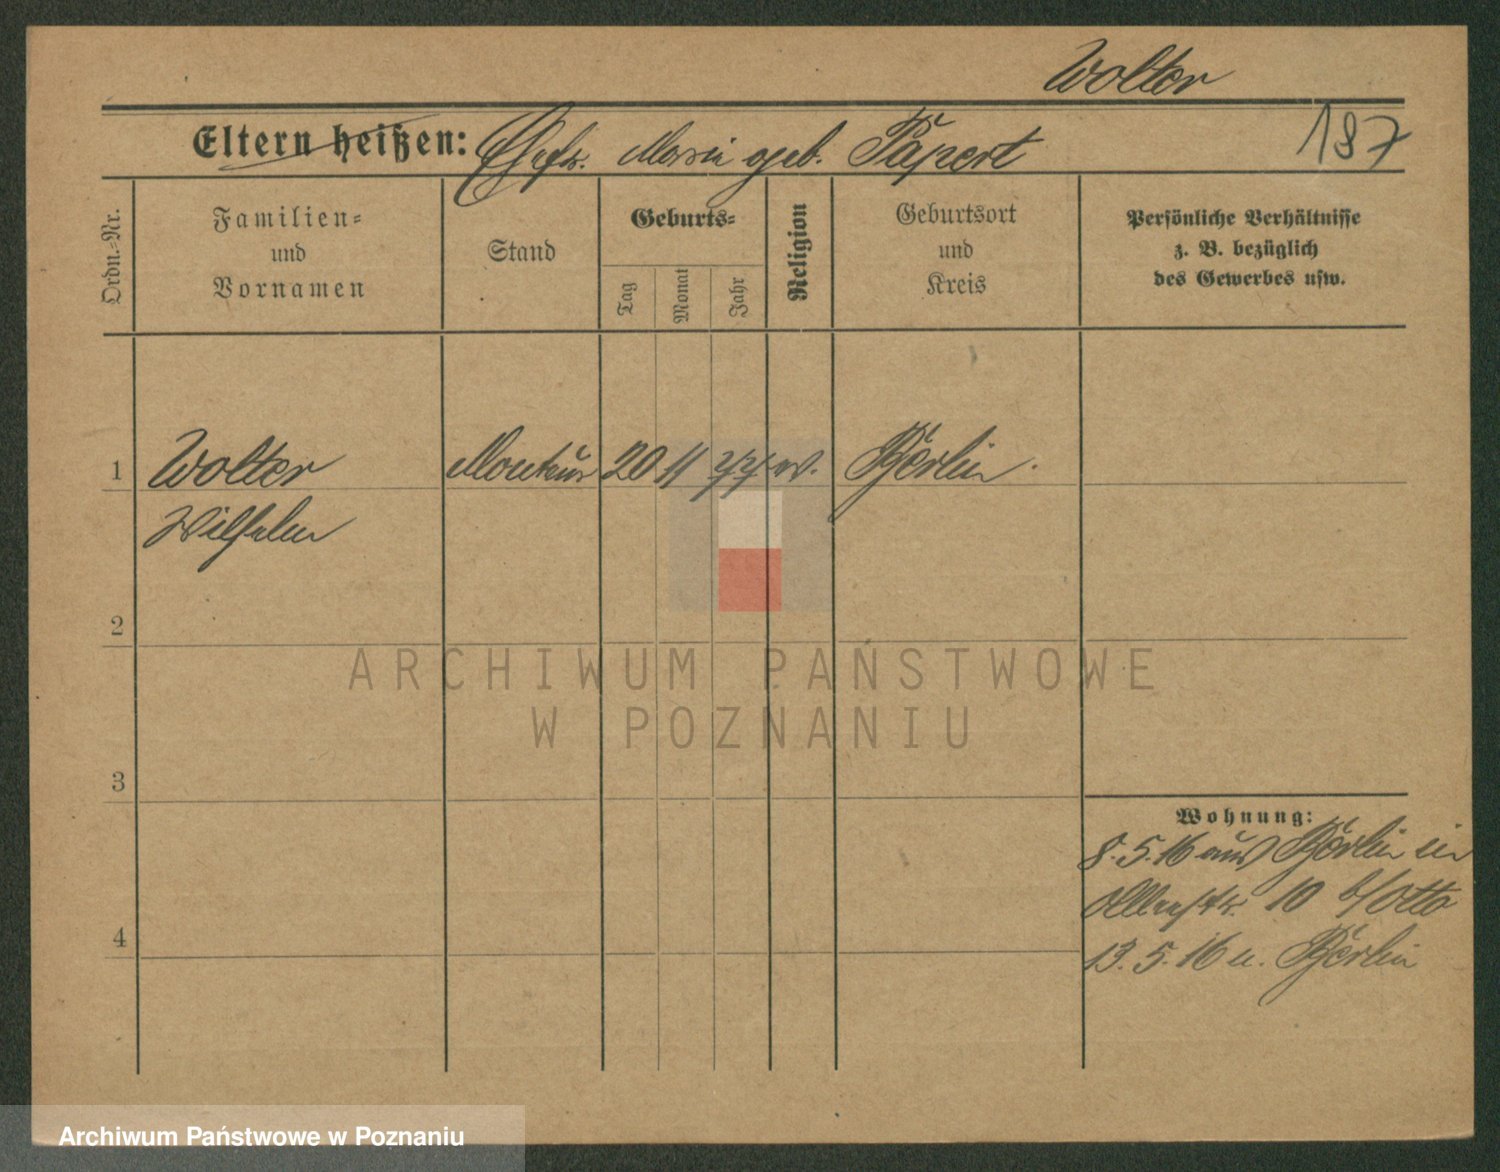 Wolter
Eltern heißen: Ehefr. Marie geb. Päpert
187
Ordn.-Nr.
Familien-
und
Vornamen
Stand
Geburts-
Tag
Monat
Jahr
Religion
Geburtsort
und
Kreis
Persönliche Verhältnisse
z. B. bezüglich
des Gewerbes usw.
1 Wolter Monteur 20 11 77 ev. Berlin.
Wilhelm
2
3
4
Wohnung:
8.5.16 aus Berlin in
10 b/Otto
13.5.16 n. Berlin
ARCHIWUM PAŃSTWOWE
W POZNANIU
Archiwum Państwowe w Poznaniu